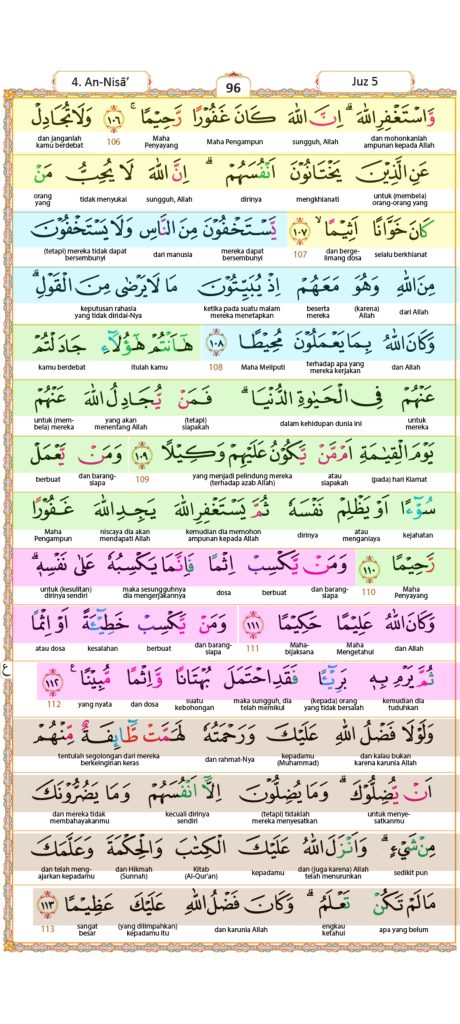 4. An-Nisā’
96
Juz 5
وَّاسْتَغْفِرِ اللّٰهَ ۗ اِنَّ اللّٰهَ كَانَ غَفُوْرًا رَّحِيْمًا ۚ ١٠٦ وَلَا تُجَادِلْ
dan mohonkanlah ampunan kepada Allah sungguh, Allah Maha Pengampun Maha Penyayang 106 dan janganlah kamu berdebat
عَنِ الَّذِيْنَ يَخْتَانُوْنَ اَنْفُسَهُمْ ۗ اِنَّ اللّٰهَ لَا يُحِبُّ مَنْ
untuk (membela) orang-orang yang mengkhianati dirinya sungguh, Allah tidak menyukai orang yang
كَانَ خَوَّانًا اَثِيْمًا ۙ ١٠٧ يَّسْتَخْفُوْنَ مِنَ النَّاسِ وَلَا يَسْتَخْفُوْنَ
selalu berkhianat dan berge-limang dosa 107 mereka dapat bersembunyi dari manusia (tetapi) mereka tidak dapat bersembunyi
مِنَ اللّٰهِ وَهُوَ مَعَهُمْ اِذْ يُبَيِّتُوْنَ مَا لَا يَرْضٰى مِنَ الْقَوْلِ ۗ
dari Allah (karena) Allah beserta mereka ketika pada suatu malam mereka menetapkan keputusan rahasia yang tidak diridai-Nya
وَكَانَ اللّٰهُ بِمَا يَعْمَلُوْنَ مُحِيْطًا ١٠٨ هٰٓاَنْتُمْ هٰٓؤُلَاۤءِ جَادَلْتُمْ
dan Allah terhadap apa yang mereka kerjakan Maha Meliputi 108 itulah kamu kamu berdebat
عَنْهُمْ فِى الْحَيٰوةِ الدُّنْيَا ۗ فَمَنْ يُّجَادِلُ اللّٰهَ عَنْهُمْ
untuk mereka dalam kehidupan dunia ini (tetapi) siapakah yang akan menentang Allah untuk (mem-bela) mereka
يَوْمَ الْقِيٰمَةِ اَمْ مَّنْ يَّكُوْنُ عَلَيْهِمْ وَكِيْلًا ١٠٩ وَمَنْ يَّعْمَلْ
(pada) hari Kiamat atau siapakah yang menjadi pelindung mereka (terhadap azab Allah) 109 dan barang-siapa berbuat
سُوْۤءًا اَوْ يَظْلِمْ نَفْسَهٗ ثُمَّ يَسْتَغْفِرِ اللّٰهَ يَجِدِ اللّٰهَ غَفُوْرًا
kejahatan atau menganiaya dirinya kemudian dia memohon ampunan kepada Allah niscaya dia akan mendapati Allah Maha Pengampun
رَّحِيْمًا ١١٠ وَمَنْ يَّكْسِبْ اِثْمًا فَاِنَّمَا يَكْسِبُهٗ عَلٰى نَفْسِهٖ ۗ
Maha Penyayang 110 dan barang-siapa berbuat dosa maka sesungguhnya dia mengerjakannya untuk (kesulitan) dirinya sendiri
وَكَانَ اللّٰهُ عَلِيْمًا حَكِيْمًا ١١١ وَمَنْ يَّكْسِبْ خَطِيْۤـَٔةً اَوْ اِثْمًا
dan Allah Maha Mengetahui Maha-bijaksana 111 dan barang-siapa berbuat kesalahan atau dosa
ثُمَّ يَرْمِ بِهٖ بَرِيْۤـًٔا فَقَدِ احْتَمَلَ بُهْتَانًا وَّاِثْمًا مُّبِيْنًا ۚ ١١٢ ع
kemudian dia tuduhkan (kepada) orang yang tidak bersalah maka sungguh, dia telah memikul suatu kebohongan dan dosa yang nyata 112
وَلَوْلَا فَضْلُ اللّٰهِ عَلَيْكَ وَرَحْمَتُهٗ لَهَمَّتْ طَّاۤىِٕفَةٌ مِّنْهُمْ
dan kalau bukan karena karunia Allah kepadamu (Muhammad) dan rahmat-Nya tentulah segolongan dari mereka berkeinginan keras
اَنْ يُّضِلُّوْكَ ۗ وَمَا يُضِلُّوْنَ اِلَّآ اَنْفُسَهُمْ وَمَا يَضُرُّوْنَكَ
untuk menye-satkanmu (tetapi) tidaklah mereka menyesatkan kecuali dirinya sendiri dan mereka tidak membahayakanmu
مِنْ شَيْءٍ ۗ وَاَنْزَلَ اللّٰهُ عَلَيْكَ الْكِتٰبَ وَالْحِكْمَةَ وَعَلَّمَكَ
sedikit pun dan (juga karena) Allah telah menurunkan kepadamu Kitab (Al-Qur'an) dan Hikmah (Sunnah) dan telah meng-ajarkan kepadamu
مَا لَمْ تَكُنْ تَعْلَمُ ۗ وَكَانَ فَضْلُ اللّٰهِ عَلَيْكَ عَظِيْمًا ١١٣
apa yang belum engkau ketahui dan karunia Allah (yang dilimpahkan) kepadamu itu sangat besar 113